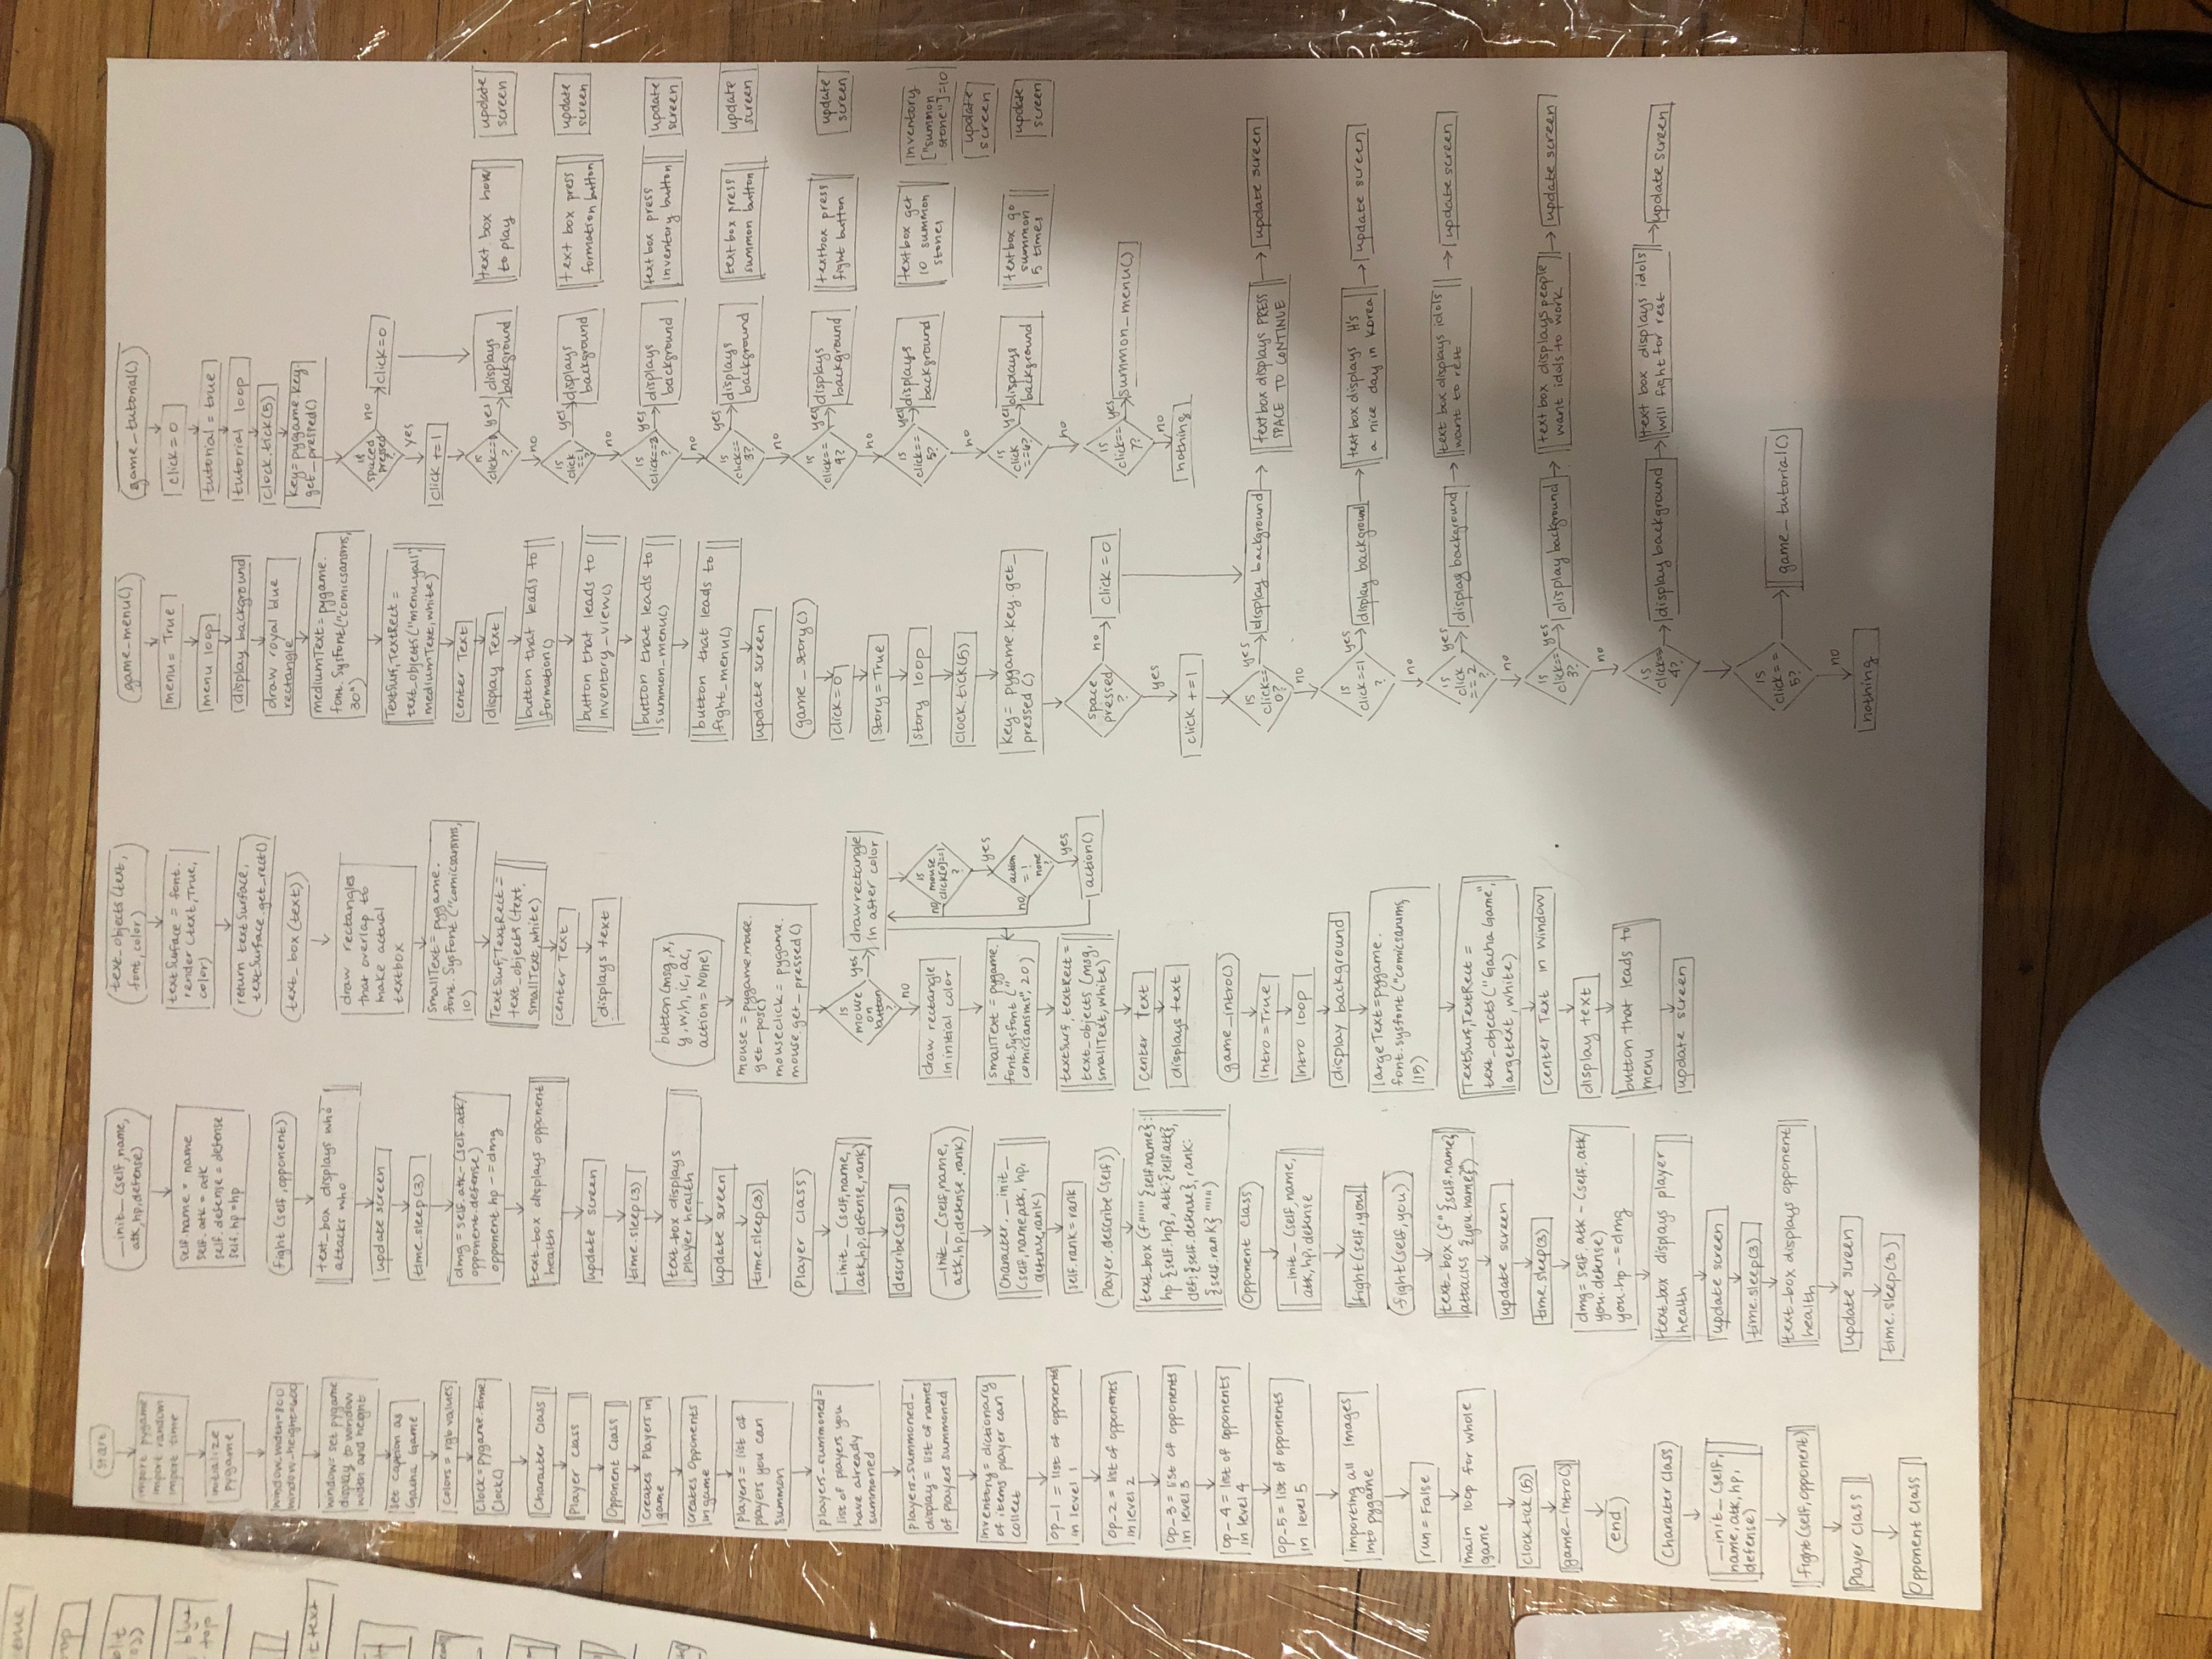 start
import pygame
import random
import time
initialize
pygame
window_width=800
window_height=600
window= set pygame
display to window
width and height
set caption as
Gacha Game
colors = rgb values
Clock=pygame.time
Clock()
Character Class
Player class
Opponent Class
Creates Players in
game
creates Opponents
in game
players = list of
players you can
summon
players_summoned=
list of players you
have already
summoned
players_summoned_
display = list of names
of players summoned
Inventory = dictionary
of items player can
collect
op_1 = list of opponents
in level 1
op_2 = list of opponents
in level 2
op_3 = list of opponents
in level 3
op_4 = list of opponents
in level 4
op_5 = list of opponents
in level 5
importing all images
into pygame
run = False
main loop for whole
game
clock.tick(5)
game_intro()
end
Character Class
__init__(self,
name, atk, hp,
defense)
fight(self, opponent)
Player class
Opponent class
__init__(self, name,
atk, hp, defense)
self.name = name
self.atk = atk
self.defense = defense
self.hp = hp
fight(self, opponent)
text_box displays who
attacks who
update screen
time.sleep(3)
dmg = self.atk-(self.atk/
opponent.defense)
opponent.hp -= dmg
text_box displays opponent
health
update screen
time.sleep(3)
text_box displays
player health
update screen
time.sleep(3)
Player class)
__init__(self, name,
atk, hp, defense, rank)
describe(self)
__init__(self, name,
atk, hp, defense, rank)
Character.__init__
(self, name, atk, hp,
defense, rank)
self.rank = rank
Player.describe(self)
text_box (f"""{self.name}:
hp:{self.hp}, atk:{self.atk},
def:{self.defense}, rank:
{self.rank}""")
Opponent Class
__init__(self, name,
atk, hp, defense
fight(self, you)
fight(self, you)
text_box (f"{self.name}
attacks {you.name}")
update screen
time.sleep(3)
dmg= self.atk-(self.atk/
you.defense)
you.hp -=dmg
text_box displays player
health
update screen
time.sleep(3)
text_box displays opponent
health
update screen
time.sleep(3)
text_objects (text,
font, color)
textSurface = font.
render (text, True,
color)
return textSurface,
textSurface.get_rect()
text_box (text)
draw rectangles
that overlap to
make actual
textbox
smallText = pygame.
font.SysFont ("comicsansms,
10)
TextSurf, TextRect =
text_objects (text,
smallText, white)
center Text
displays text
button (msg, x,
y, w, h, ic, ac,
action = None)
mouse = pygame.mouse.
get_pos()
mouseclick = pygame.
mouse.get_pressed()
is
mouse
on
button
?
yes
draw rectangle
in after color
no
draw rectangle
in initial color
is
mouse
click[0]==1
?
no
yes
action
=!
none
?
no
yes
action()
smallText = pygame.
font.Sysfont ("
comicsansms", 20)
textSurf, textRect =
text_objects (msg,
smallText, white)
center Text
displays text
game_intro()
Intro = True
Intro loop
display background
largeText=pygame.
font.sysfont ("comicsansms,
115)
TextSurf, TextRect =
text_objects ("Gacha Game",
largetext, white)
center Text in Window
display text
button that leads to
menu
update screen
game_menu()
menu = True
menu loop
display background
draw royal blue
rectangle
mediumText = pygame.
font.SysFont("comicsansms,
30")
TextSurf, TextRect =
text_objects("menu_yall",
mediumText, white)
center Text
display Text
button that leads to
formation()
button that leads to
inventory_view()
button that leads to
summon_menu()
button that leads to
fight_menu()
update screen
game_story()
click=0
story = True
story loop
clock.tick(5)
key= pygame.key.get_
pressed()
space
pressed
?
no
click = 0
yes
click +=1
is
click==
0?
yes
display background
text box displays PRESS
SPACE TO CONTINUE
update screen
no
is
click==1
?
yes
display background
text box displays It's
a nice day in Korea
update screen
no
is
click
==2
?
yes
display background
text box displays idols
want to rest
update screen
no
is
click==
3?
yes
display background
text box displays people
want idols to work
update screen
no
is
click==
4?
display background
text box displays idols
will fight for rest
update screen
is
click==
5?
game_tutorial()
no
nothing
game_tutorial()
click=0
tutorial = true
tutorial loop
clock.tick(5)
key=pygame.key.
get_pressed()
is
spaced
pressed
?
no
click=0
yes
click +=1
?
yes
displays
background
text box how
to play
update
screen
no
is
click
==1
?
yes
displays
background
text box press
formation button
update
screen
no
is
?
yes
display
background
text box press
inventory button
update
screen
no
is
click==
3?
yes
displays
background
text box press
summon button
update
screen
no
is
click==
4?
yes
displays
background
textbox press
fight button
update
screen
no
is
click==
5?
yes
displays
background
textbox get
10 summon
stones
inventory
["summon
stone"]=10
update
screen
no
is
click
==6?
yes
displays
background
textbox go
summon
5 times
update
screen
no
is
click==
7?
yes
summon_menu()
no
nothing